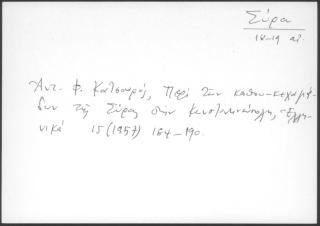 Σύρα
18-19 αἰ.
Ἀντ. Φ. Κατσουρός, Περὶ τῶν καπου-κεχαγιά-
δων τῆς Σύρας στὴν Κωνσταντινούπολη, Ἑλλη-
νικά 15 (1957) 184-190.